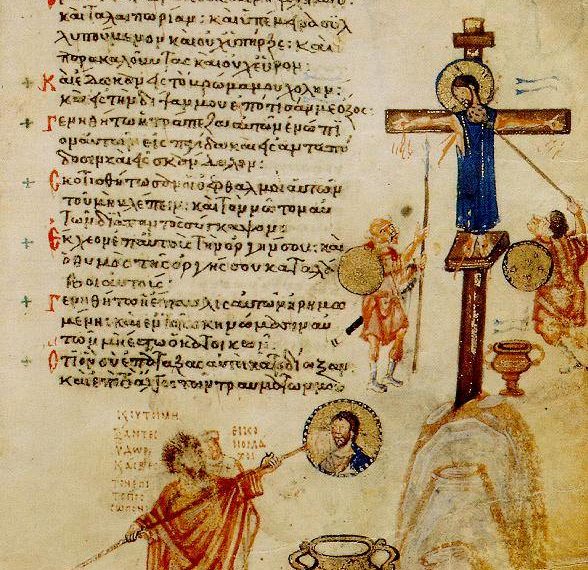 καὶ ταλαιπωρίαν; καὶ ὑπέμεινα συλ
λυπούμενον καὶ οὐχ ὑπῆρξε; καὶ
παρακαλοῦντας καὶ οὐχ εὗρον:
Καὶ ἔδωκαν εἰς τὸ βρῶμα μου χολὴν;
καὶ εἰς τὴν δίψαν μου ἐπότισάν με ὄξος:
Γενηθήτω ἡ τράπεζα αὐτῶν ἐνώπι
ον αὐτῶν εἰς παγίδα καὶ εἰς ἀνταπό
δοσιν καὶ εἰς σκάνδαλον:
Σκοτισθήτωσαν οἱ ὀφθαλμοὶ αὐτῶν
τοῦ μὴ βλέπειν; καὶ τὸν νῶτον αὐ
τῶν διὰ παντὸς σύγκαμψον:
Ἔκχεον ἐπ' αὐτοὺς τὴν ὀργήν σου; καὶ
ὁ θυμὸς τῆς ὀργῆς σου καταλά
βοι αὐτούς:
Γενηθήτω ἡ ἔπαυλις αὐτῶν ἠρημω
μένη; καὶ ἐν τοῖς σκηνώμασιν αὐ
τῶν μὴ ἔστω ὁ κατοικῶν:
Ὅτι ὃν σὺ ἐπάταξας αὐτοὶ κατεδίωξαν;
καὶ ἐπὶ τὸ ἄλγος τῶν τραυμάτων μου
ΞΑΝΤΕC
ΥΔΩΡ
ΕΙΚΟ
ΝΟΜΑ
ΧΟΙ